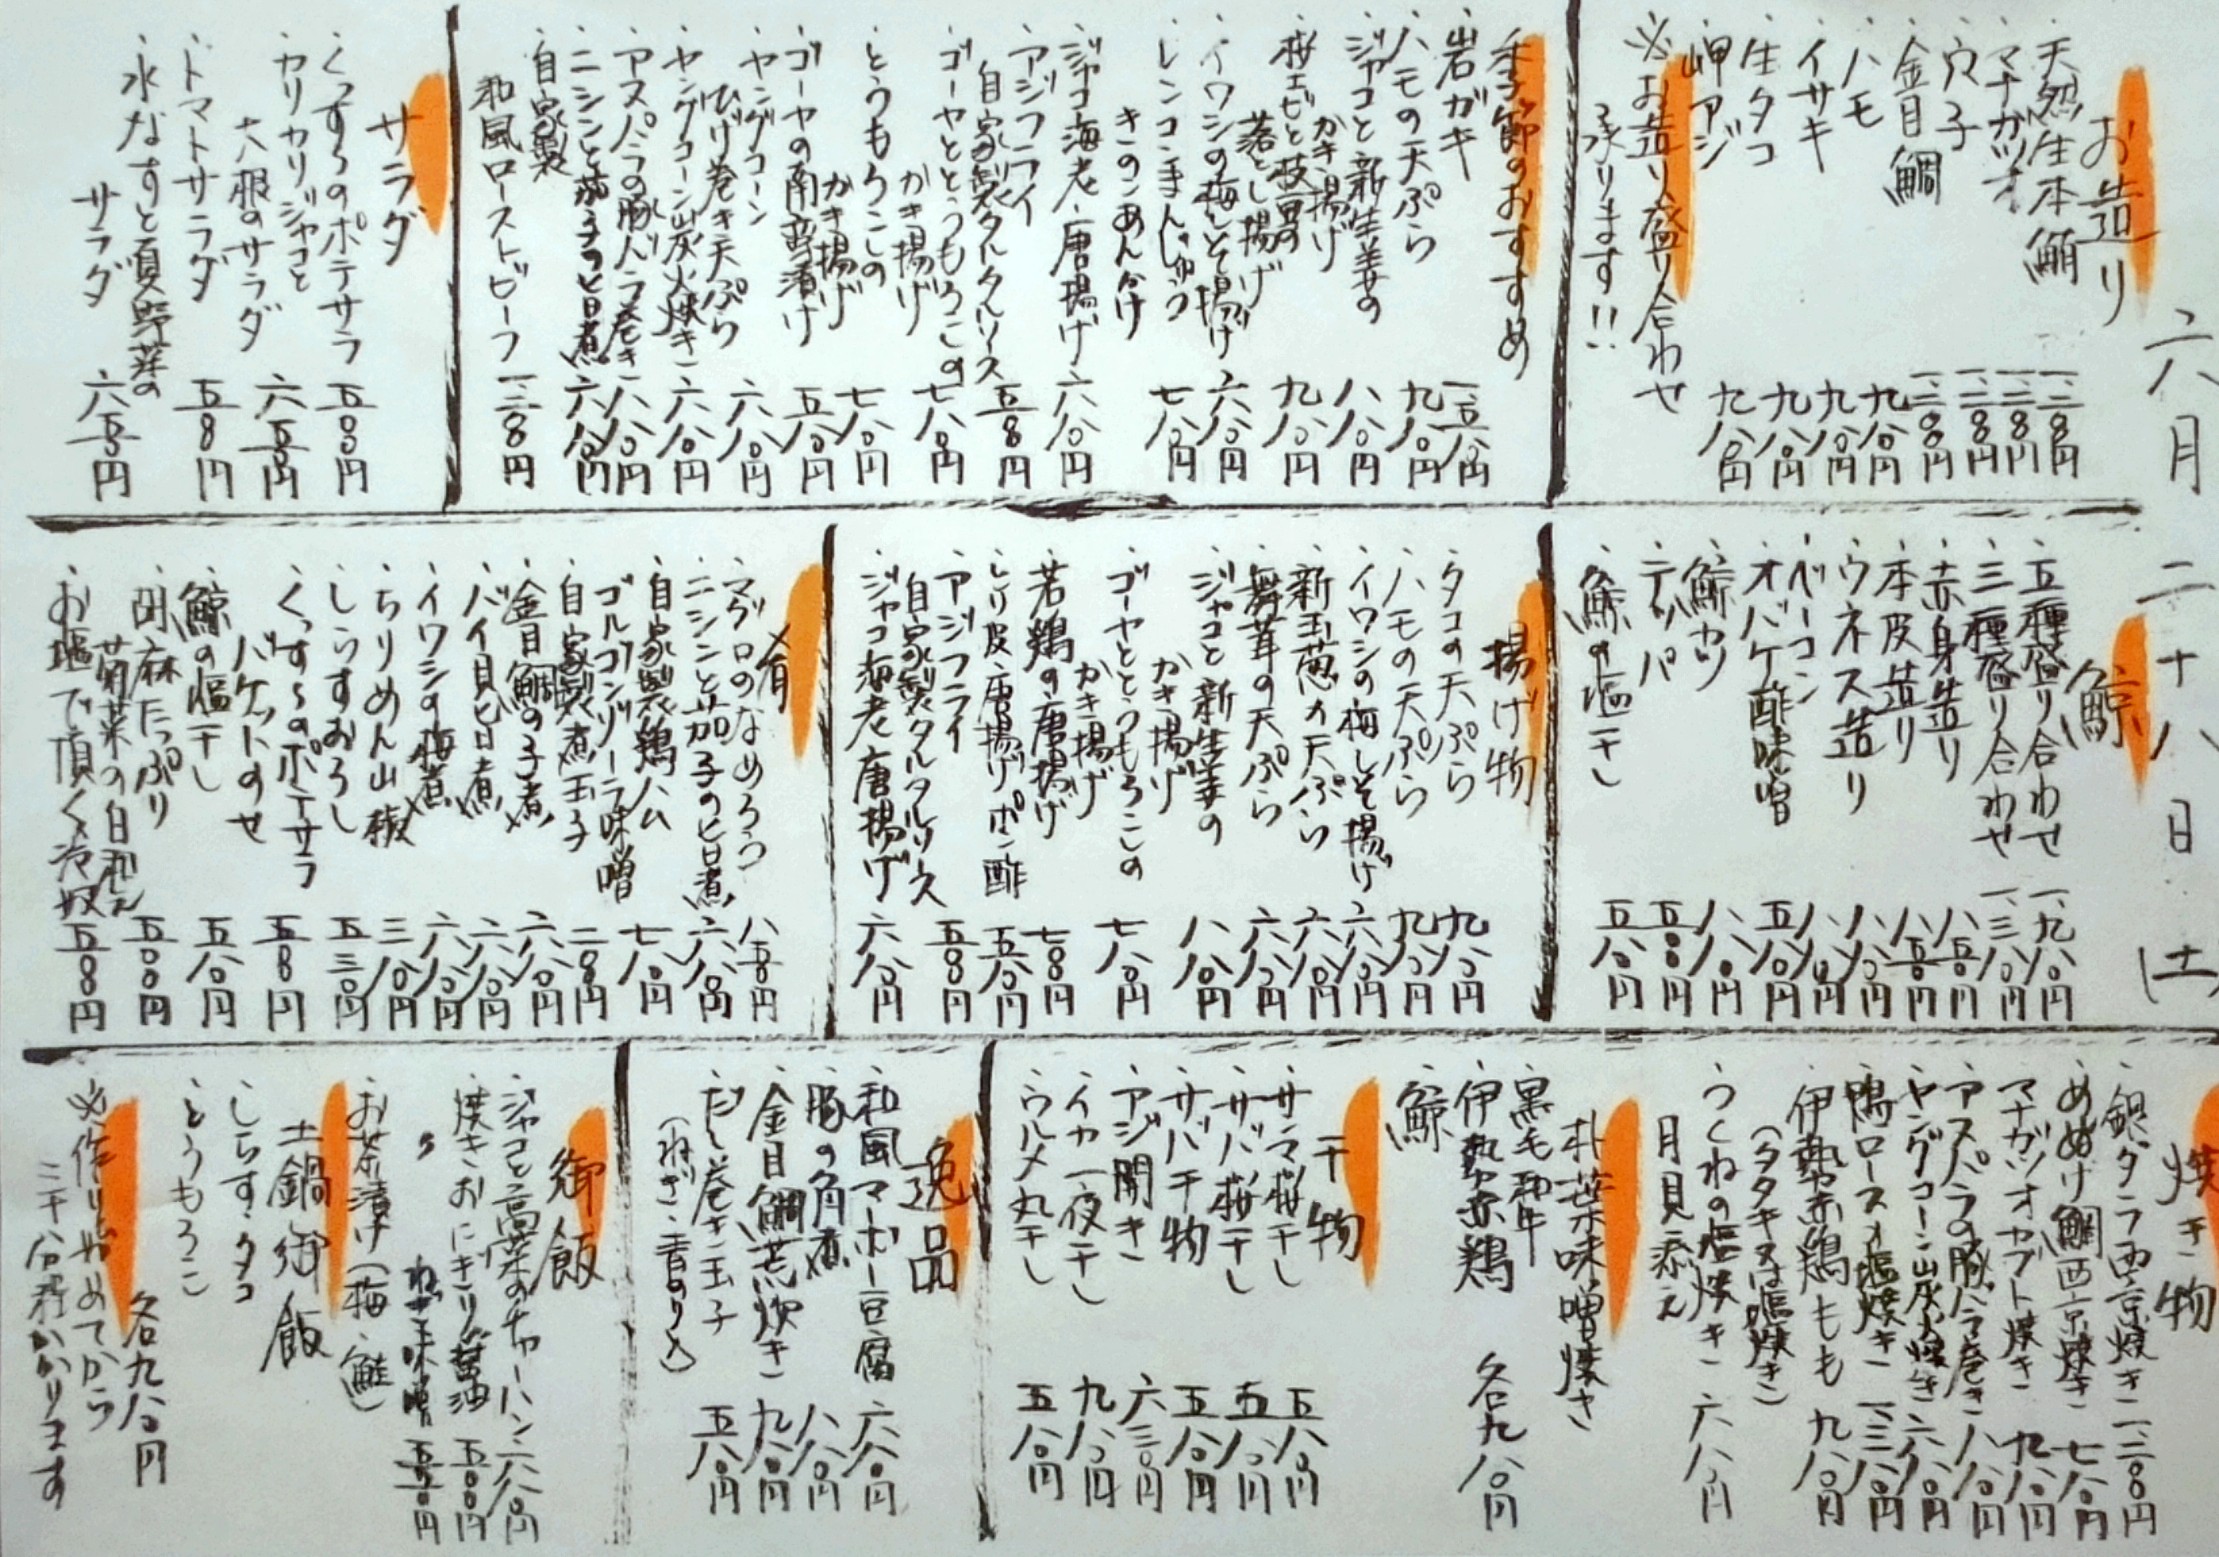 六月二十八日(土)
お造り
・天然生本鮪 一、三八〇円
・マナガツオ 一、三八〇円
・穴子 一、三八〇円
・金目鯛 一、三八〇円
・ハモ 九八〇円
・イサキ 九八〇円
・生タコ 九八〇円
・岬アジ 九八〇円
※お造り盛り合わせ
承ります!!
季節のおすすめ
・岩ガキ 一、五八〇円
・ハモの天ぷら 九八〇円
・ジャコと新生姜の
かき揚げ 八八〇円
・桜エビと枝豆の
落とし揚げ 九八〇円
・イワシの梅しそ揚げ 六八〇円
・レンコンまんじゅう
きのこあんかけ 七八〇円
・ジャコ海老唐揚げ 六八〇円
・アジフライ
自家製タルタルソース 五八〇円
・ゴーヤととうもろこしの
かき揚げ 七八〇円
・とうもろこしの
かき揚げ 七八〇円
・ゴーヤの南蛮漬け 五八〇円
・ヤングコーン
ひげ巻き天ぷら 六八〇円
・ヤングコーン炭火焼き 六八〇円
・アスパラの豚バラ巻き 八八〇円
・ニシンと茄子の旨煮 六八〇円
・自家製
和風ローストビーフ 一、三八〇円
サラダ
・くっすぅのポテサラ 五八〇円
・カリカリジャコと
大根のサラダ 六五〇円
・トマトサラダ 五八〇円
・水なすと夏野菜の
サラダ 六五〇円
鯨
・五種盛り合わせ 一、九八〇円
・三種盛り合わせ 一、三八〇円
・赤身造り 八五〇円
・本皮造り 八五〇円
・ウネス造り 八八〇円
・ベーコン 八八〇円
・オバケ酢味噌 五八〇円
・鯨カツ 八八〇円
・テッパ 五八〇円
・鯨の塩干し 五八〇円
揚げ物
・タコの天ぷら 九八〇円
・ハモの天ぷら 九八〇円
・イワシの梅しそ揚げ 六八〇円
・新玉葱の天ぷら 六八〇円
・舞茸の天ぷら 六八〇円
・ジャコと新生姜の
かき揚げ 八八〇円
・ゴーヤととうもろこしの
かき揚げ 七八〇円
・若鶏の唐揚げ 七八〇円
・とり皮唐揚げポン酢 五八〇円
・アジフライ
自家製タルタルソース 五八〇円
・ジャコ海老唐揚げ 六八〇円
肴
・マグロのなめろう 八五〇円
・ニシンと茄子の旨煮 六八〇円
・自家製鶏ハム 七八〇円
・ゴルゴンゾーラ味噌
・自家製煮玉子 二八〇円
・金目鯛の子煮 六八〇円
・バイ貝旨煮 六八〇円
・イワシの梅煮 六八〇円
・ちりめん山椒 三八〇円
・しらすおろし 五三〇円
・くっすぅのポテサラ
バケットのせ 五八〇円
・鯨の塩干し 五八〇円
・胡麻たっぷり
菊菜の白和え 五〇〇円
・お塩で頂く冷奴 五八〇円
焼き物
・銀ダラ西京焼き 一、三〇〇円
・めぬけ鯛西京焼き 七八〇円
・マナガツオカブト焼き 九八〇円
・アスパラの豚バラ巻き 八八〇円
・ヤングコーン炭火焼き 六八〇円
・鴨ロース塩焼き 一、三八〇円
・伊勢赤鶏もも 九八〇円
(タタキ又は塩焼き)
・つくねの塩焼き 六八〇円
月見添え
朴葉味噌焼き
・黒毛和牛
・伊勢赤鶏
・鯨 各九八〇円
干物
・サンマ桜干し 五八〇円
・サバ桜干し 五八〇円
・サバ干物 五八〇円
・アジ開き 六三〇円
・イカ一夜干し 九八〇円
・ウルメ丸干し 五八〇円
逸品
・和風マーボー豆腐 六八〇円
・豚の角煮 八八〇円
・金目鯛荒炊き 九八〇円
・だし巻き玉子 五八〇円
(ねぎ・青のり入)
御飯
・ジャコと高菜のチャーハン 六八〇円
・焼きおにぎり醤油 五〇〇円
・〃 ねぎ味噌 五五〇円
・お茶漬け(梅・鮭)
土鍋御飯
・しらす・タコ
・とうもろこし
各九八〇円
※作り始めてから
三十分程かかります